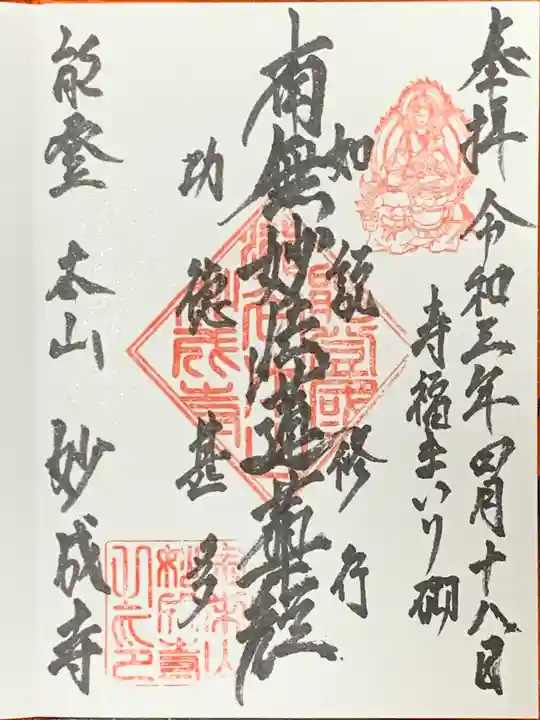 奉拝 令和三年四月十八日
寺福まいり
如説修行
南無妙法蓮華経
功徳甚多
能登 本山 妙成寺